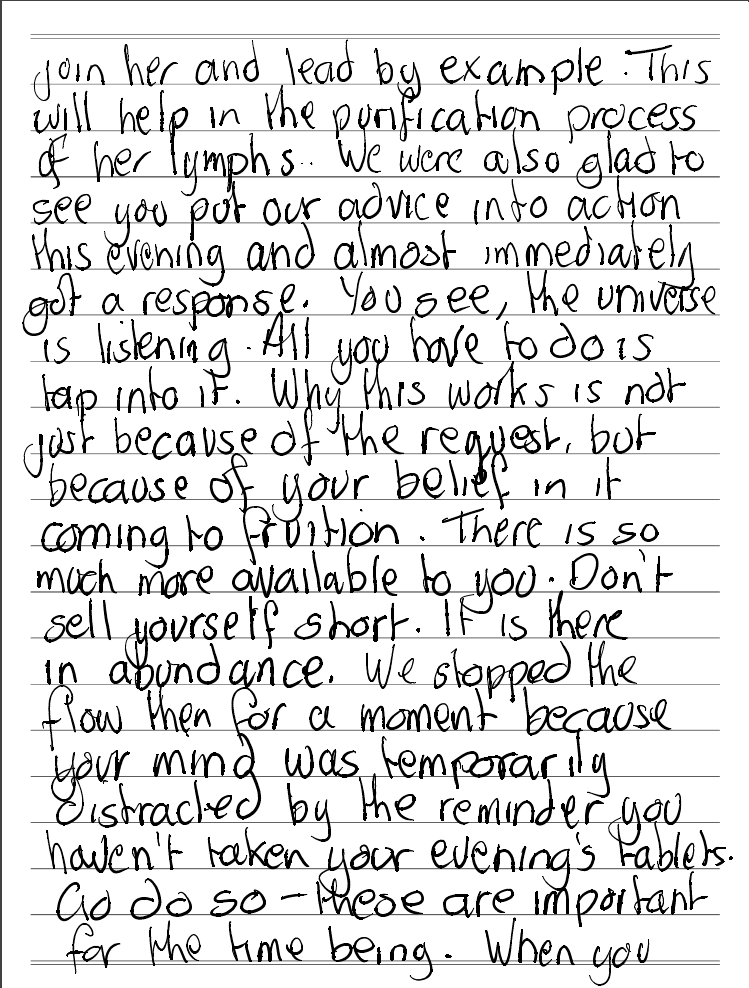 join her and lead by example. This
will help in the purification process
of her lymphs.. We were also glad to
see you put our advice into action
this evening and almost immediately
got a response. You see, the universe
is listening. All you have to do is
tap into it. Why this works is not
just because of the request, but
because of your belief in it
coming to fruition. There is so
much more available to you. Don't
sell yourself short. It is there
in abundance. We stopped the
flow then for a moment because
your mind was temporarily
distracted by the reminder you
haven't taken your evening's tablets.
Go do so - these are important
for the time being. When you